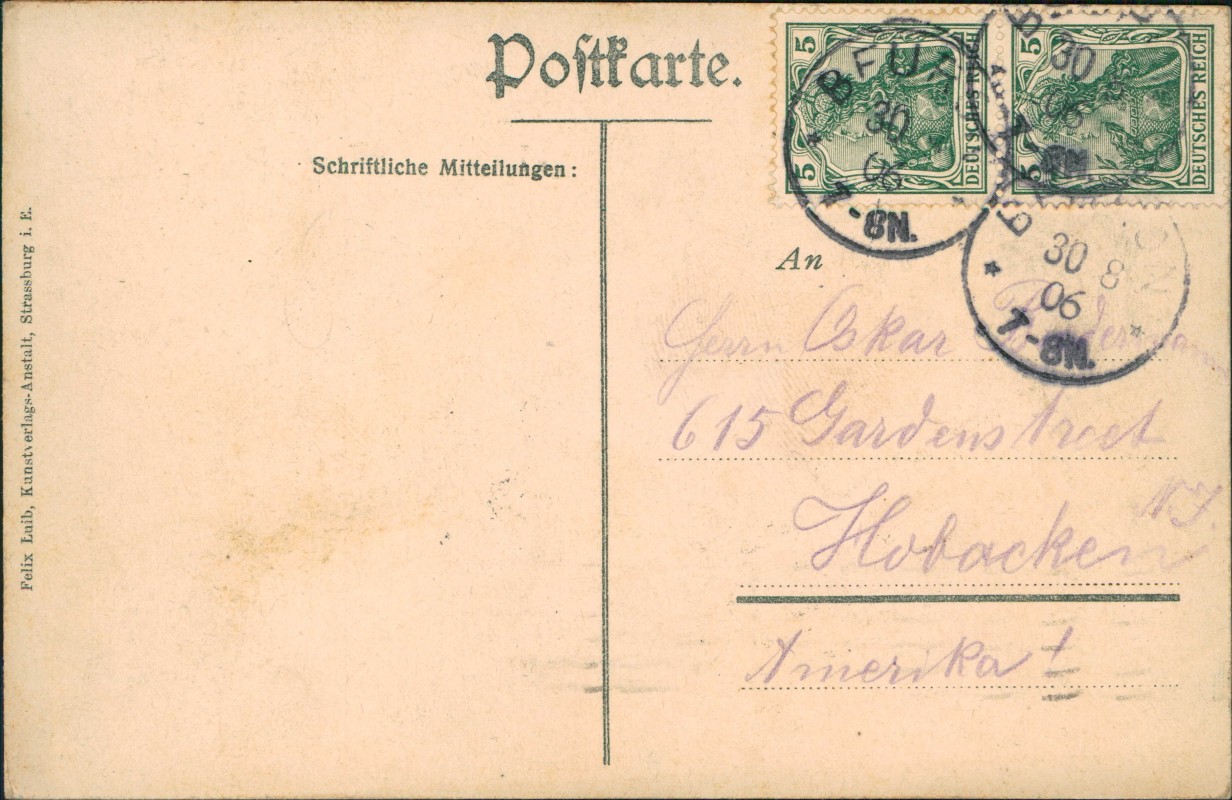 Postkarte.
Schriftliche Mitteilungen:
5
5
DEUTSCHES REICH
5
5
DEUTSCHES REICH
30
06
7-8N.
30
06
30 8
06
7-8N.
An
Herrn Oskar
615 Gardenstreet
Hobacken
N.J.
Amerika!
Felix Luib, Kunstverlags-Anstalt, Strassburg i. E.